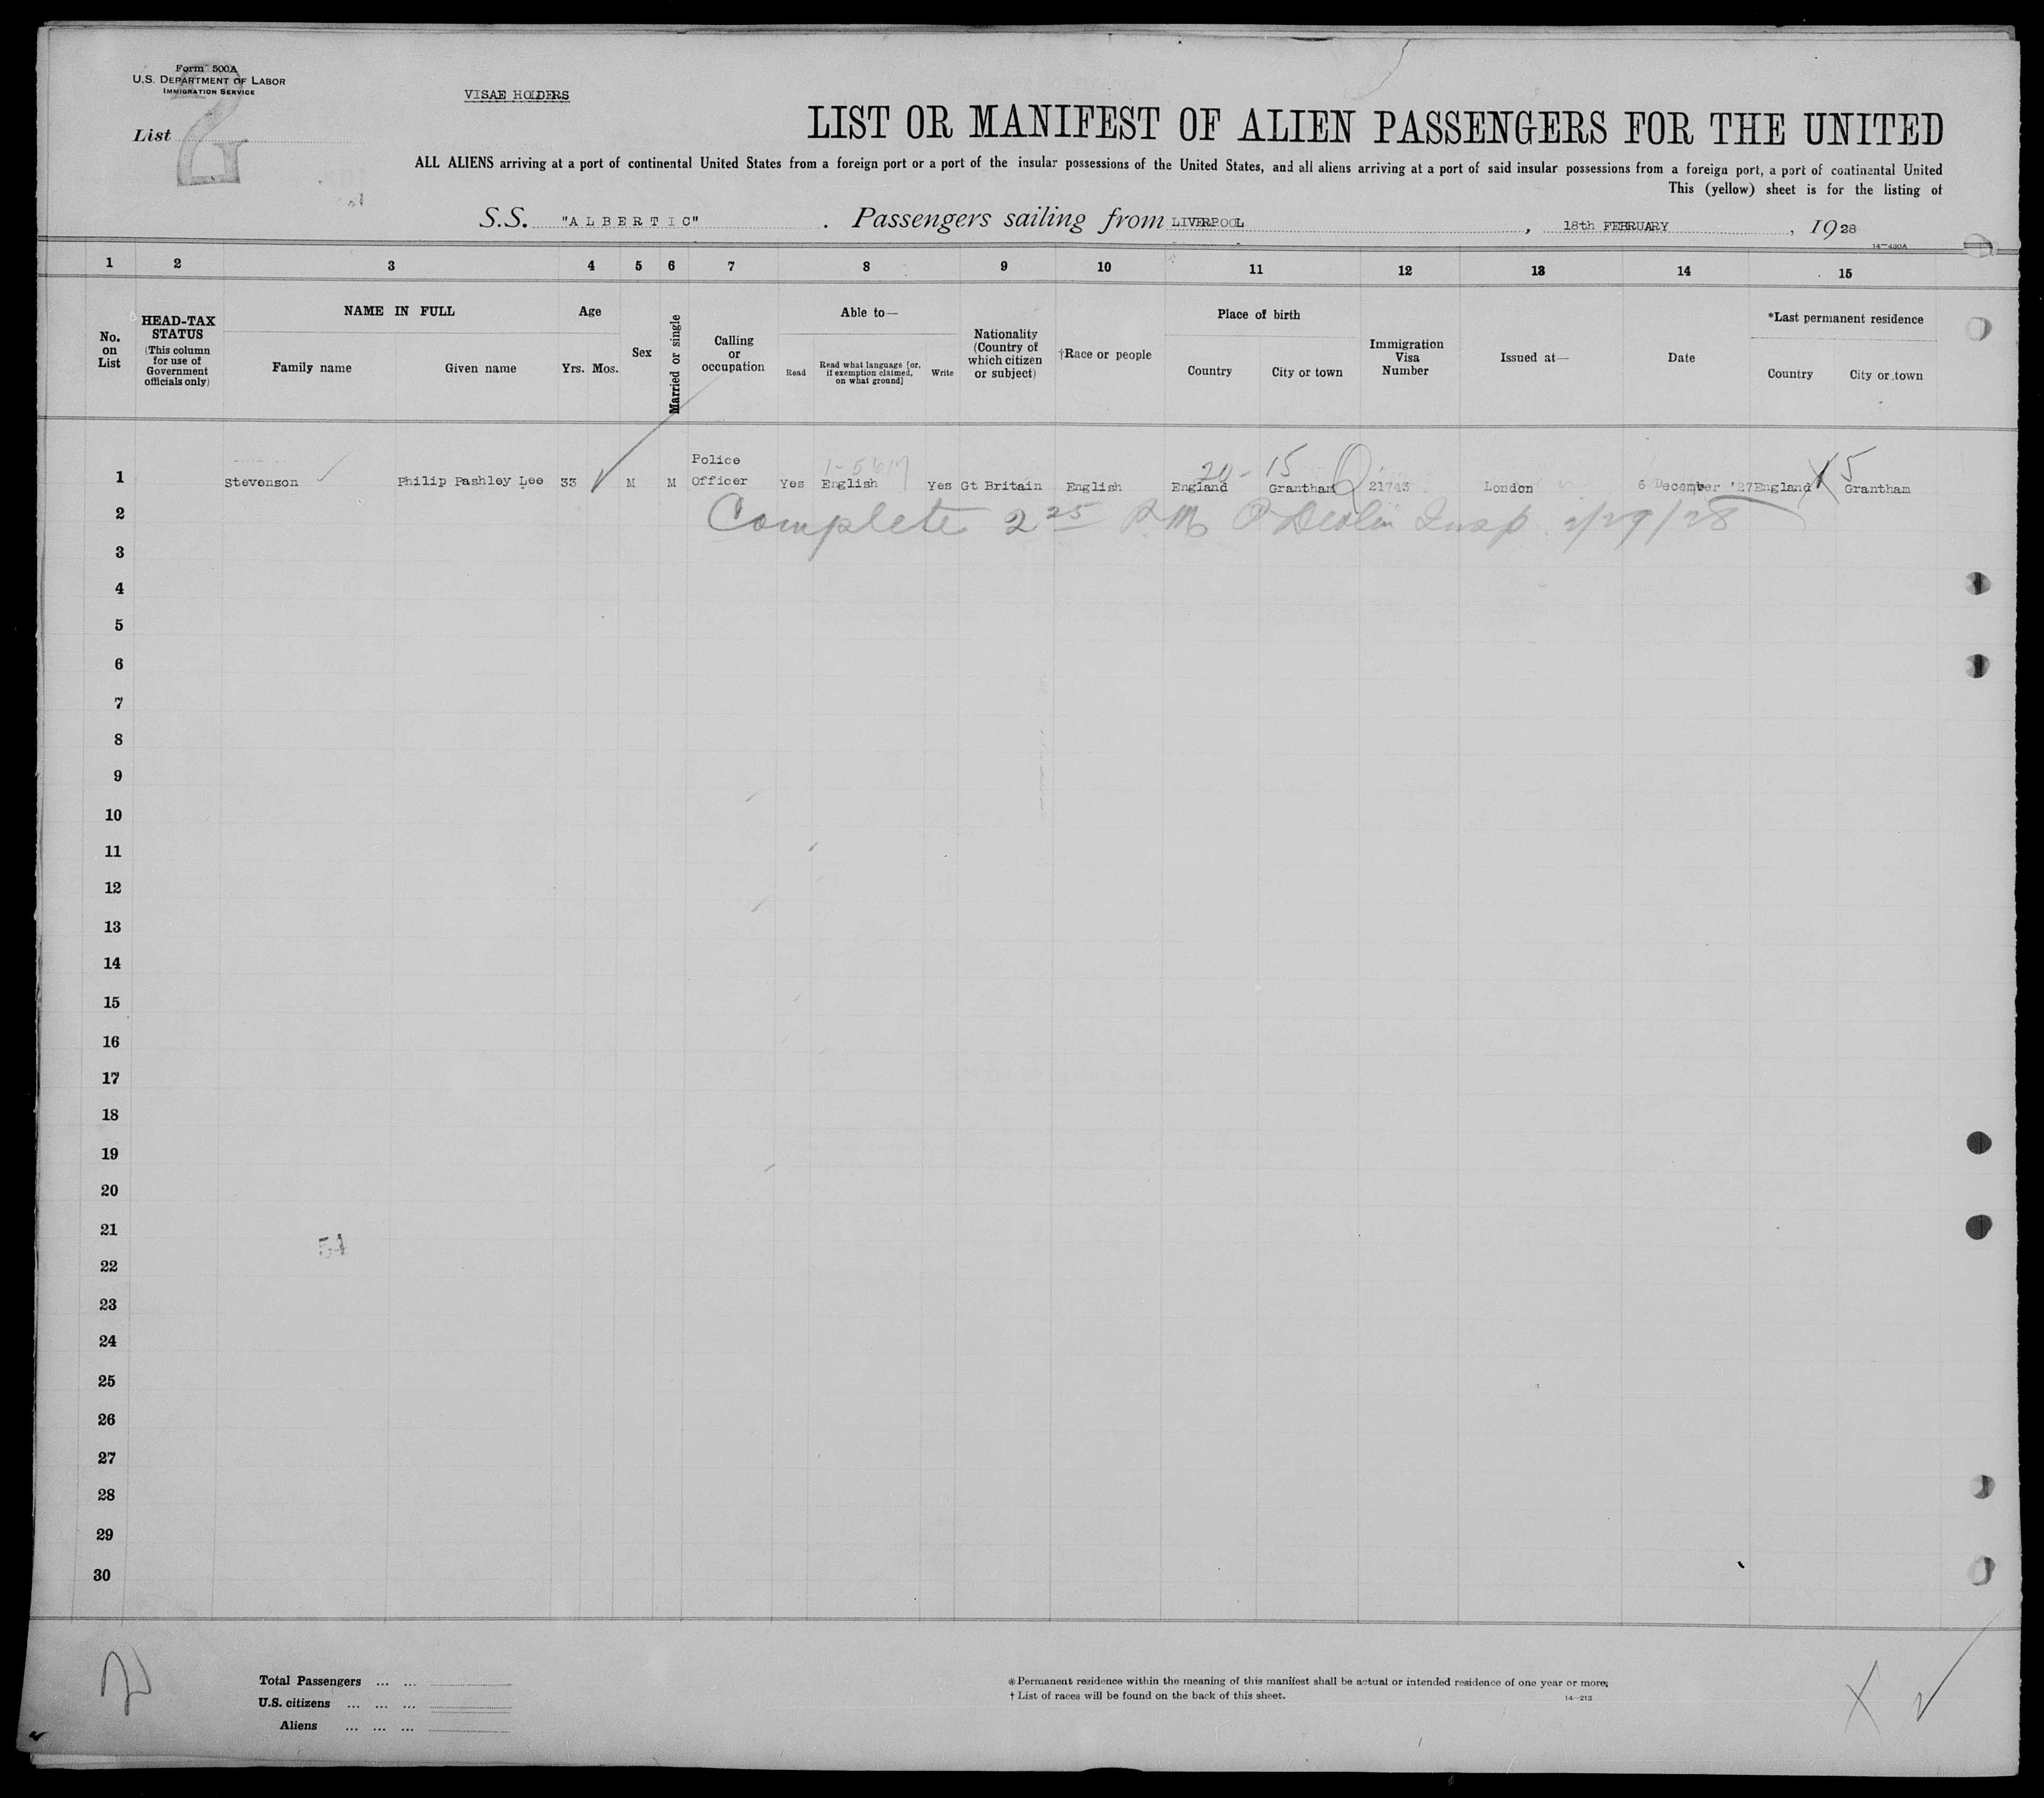 Form 500A
U.S. DEPARTMENT OF LABOR
IMMIGRATION SERVICE
VISAE HOLDERS
List 2
LIST OR MANIFEST OF ALIEN PASSENGERS FOR THE UNITED
ALL ALIENS arriving at a port of continental United States from a foreign port or a port of the insular possessions of the United States, and all aliens arriving at a port of said insular possessions from a foreign port, a port of continental United
This (yellow) sheet is for the listing of
S.S. "ALBERTIC" . Passengers sailing from LIVERPOOL , 18th FEBRUARY , 1928
14-430A
1 2 3 4 5 6 7 8 9 10 11 12 13 14 15
No. on List
HEAD-TAX STATUS
(This column for use of Government officials only)
NAME IN FULL
Family name Given name
Age
Yrs. Mos.
Sex
Married or single
Calling or occupation
Able to—
Read
Read what language [or, if exemption claimed, on what ground]
Write
Nationality (Country of which citizen or subject)
†Race or people
Place of birth
Country City or town
Immigration Visa Number
Issued at—
Date
*Last permanent residence
Country City or town
20 - 15 X 5
1 Stevenson Philip Pashley Lee 33 M M Police Officer Yes English Yes Gt Britain English England Grantham 21743 London 6 December '27 England Grantham
2 Complete 2 25 P.M. Devlin Insp. 2/29/28
3
4
5
6
7
8
9
10
11
12
13
14
15
16
17
18
19
20
21
54
22
23
24
25
26
27
28
29
30
Total Passengers ... ...
U.S. citizens ... ... ...
Aliens ... ... ...
*Permanent residence within the meaning of this manifest shall be actual or intended residence of one year or more.
†List of races will be found on the back of this sheet.
14-213
X